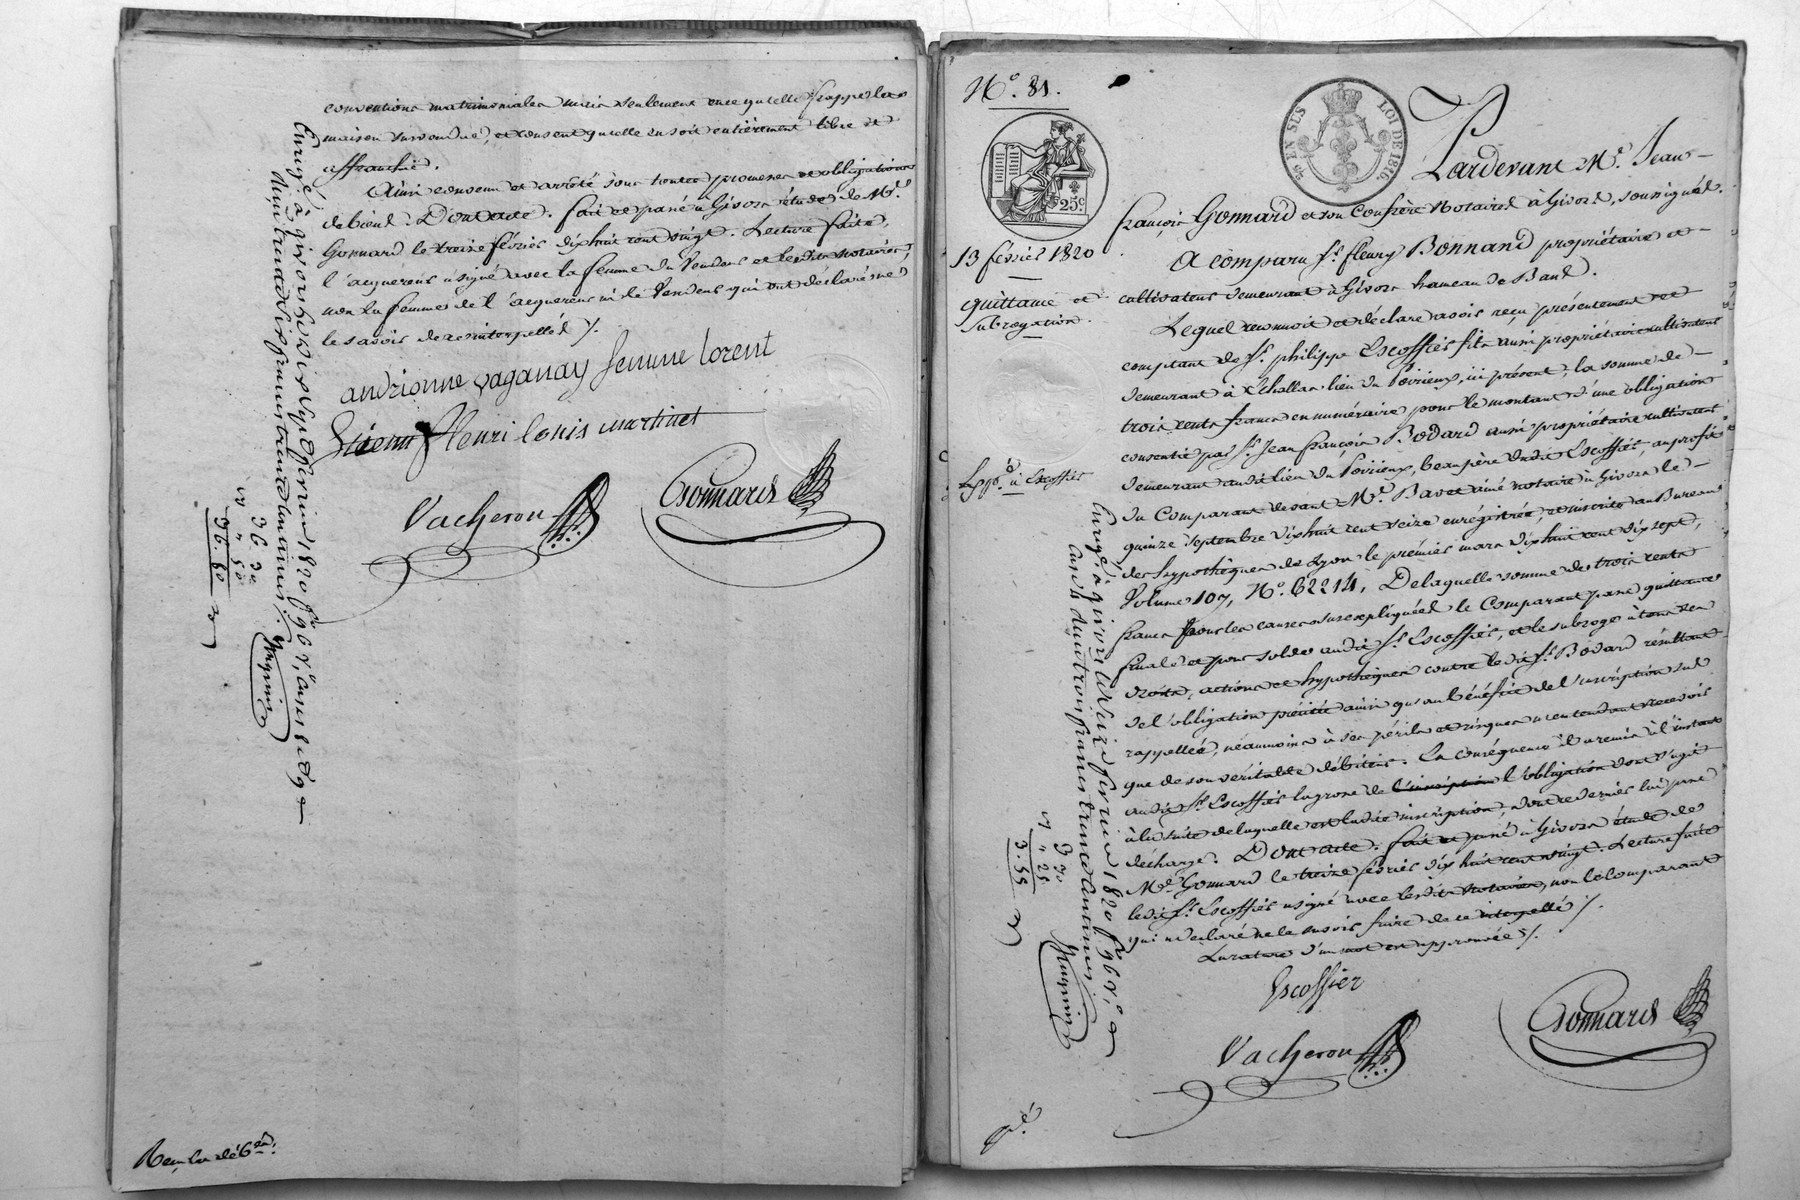 conventions matrimoniales mais seulement en ce qu'elle frappe la
maison survendue, et consent qu'elle en soit entièrement libre et
affranchie.
Ainsi convenu et arrêté sous toutes promesses et obligations
de bien. Dont acte. fait et passé à Givors étude de Mr.
Gonnard le treize février dix huit cent vingt. Lecture faite,
l'acquereur a signé avec la femme du Vendeur et lesdits notaires,
non la femme de l'acquereur ni le Vendeur qui ont déclaré ne
le savoir de ce interpellés /.
andrionne vaganay femme lorent
fleuri louis martinet
Vacheron Gonnard
Enrgé. à givors le dix sept février 1820 fo. 96 vo. cases 8 et 9
trente six francs trente centimes.
36. 30
" 50
36. 80
No. 81.
EN SUS LOI DE 1816
25c.
13 février 1820
quittance et
subrogation.
Exp. à Escoffier
Pardevant Me. Jean
françois Gonnard et son Confrère Notaires à Givors, soussignés.
A comparu Sr. fleury Bonnand propriétaire et
cultivateur demeurant à Givors hameau de Bans.
Lequel reconnoit et déclare avoir reçu présentement et
comptant de Sr. philippe Escoffier fils aussi propriétaire cultivateur
demeurant à Echallas lieu du Poirieux, ici présent, la somme de
trois cents francs en numéraire pour le montant d'une obligation
consentie par Sr. Jean françois Bodard aussi propriétaire cultivateur
demeurant audit lieu du Poirieux, beaupère dudit Escoffier, au profit
du Comparant devant Me. Bavet ainé notaire à Givors le
quinze septembre dix huit cent seize enregistrée, et inscrite au Bureau
des hypothèques de Lyon le premier mars dix huit cent dix sept,
Volume 107, No. 62214, De laquelle somme de trois cents
francs pour les causes susexpliquées le Comparant passe quittance
finale et pour solde audit Sr. Escoffier, et le subroge à tous ses
droits, actions et hypothèques contre ledit Sr. Bodard résultant
de l'obligation précitée ainsi qu'au bénéfice de l'inscription sus
rappellée, néanmoins à ses périls et risques n'entendant recevoir
que de son véritable débiteur. En conséquence il a remis à l'instant
audit Sr. Escoffier la grosse de l'inscription l'obligation dont s'agit
à la suite de laquelle est ladite inscription, dont ce dernier lui passe
décharge. Dont acte. fait et passé à Givors étude de
Me. Gonnard le treize février dix huit cent vingt. Lecture faite
ledit Sr. Escoffier a signé avec lesdits Notaires, non le Comparant
qui a déclaré ne le savoir faire de ce interpellé /.
La rature d'un mot est approuvée /.
Escoffier
Vacheron Gonnard
Enrgé. à givors le seize février 1820 fo. 96 vo.
case 4 trois francs trente centimes.
3 30
" 25
3. 55